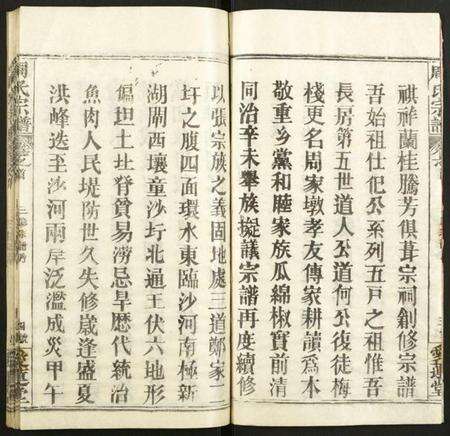 周氏宗譜
祺祥蘭桂騰芳俱葺宗祠創修宗譜
吾始祖仕杞公系列五戸之祖惟吾
長居第五世道人公道何公復徒梅
棧更名周家墩孝友傳家耕讀為本
敬重乡黨和睦家族瓜綿椒實前清
同治辛未舉族擬議宗譜再度續修
愛蓮堂
以張宗族之義固地處三道鄭家二
圩之腹四面環水東臨沙河南極新
湖閘西壤童沙圩北通王伏六地形
偏坦土圵脊貧易涝忌旱歷代統治
魚肉人民堤防世久失修歲逢盛夏
洪峰迭至沙河兩岸泛濫成災甲午
周氏宗譜
愛蓮堂